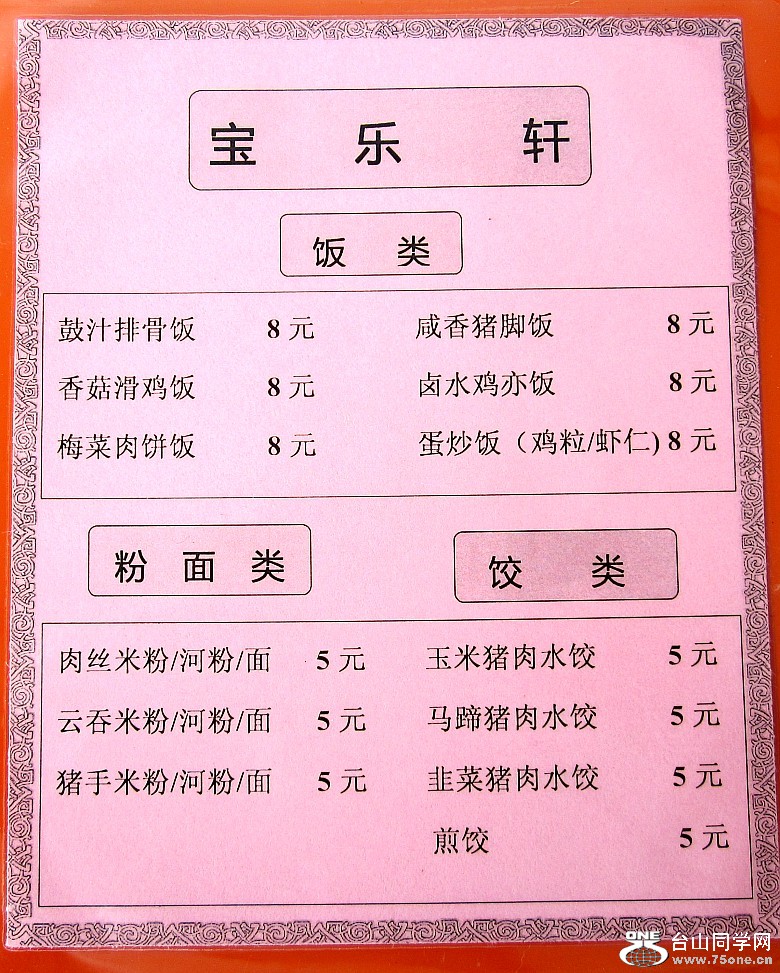 宝乐轩
饭类
鼓汁排骨饭 8元 咸香猪脚饭 8元
香菇滑鸡饭 8元 卤水鸡亦饭 8元
梅菜肉饼饭 8元 蛋炒饭（鸡粒/虾仁) 8元
粉面类 饺类
肉丝米粉/河粉/面 5元 玉米猪肉水饺 5元
云吞米粉/河粉/面 5元 马蹄猪肉水饺 5元
猪手米粉/河粉/面 5元 韭菜猪肉水饺 5元
煎饺 5元
ONE 台山同学网
www.75one.cn